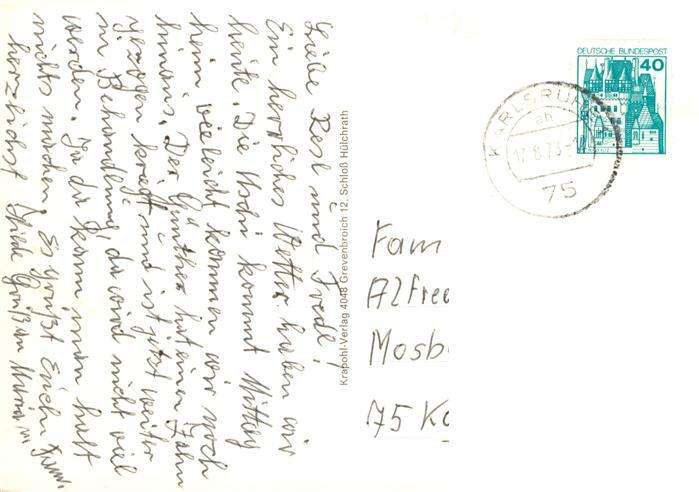 Liebe Resl und Fredl!
Ein herrliches Wetter haben wir
heute. Die Uschi kommt Mittag
heim vieleicht kommen wir noch
hinaus. Der Günther hat einen Zahn
gezogen kriegt und ist jetzt weiter
in Behandlung, da wird nicht viel
werden. Ja da kann man halt
nichts machen. Es grüßt Euch
herzlichst
Krapohl-Verlag 4048 Grevenbroich 12, Schloß Hülchrath
DEUTSCHE BUNDESPOST
40
KARLSRUHE
75
Fam
Alfred
Mosb
75 Ka